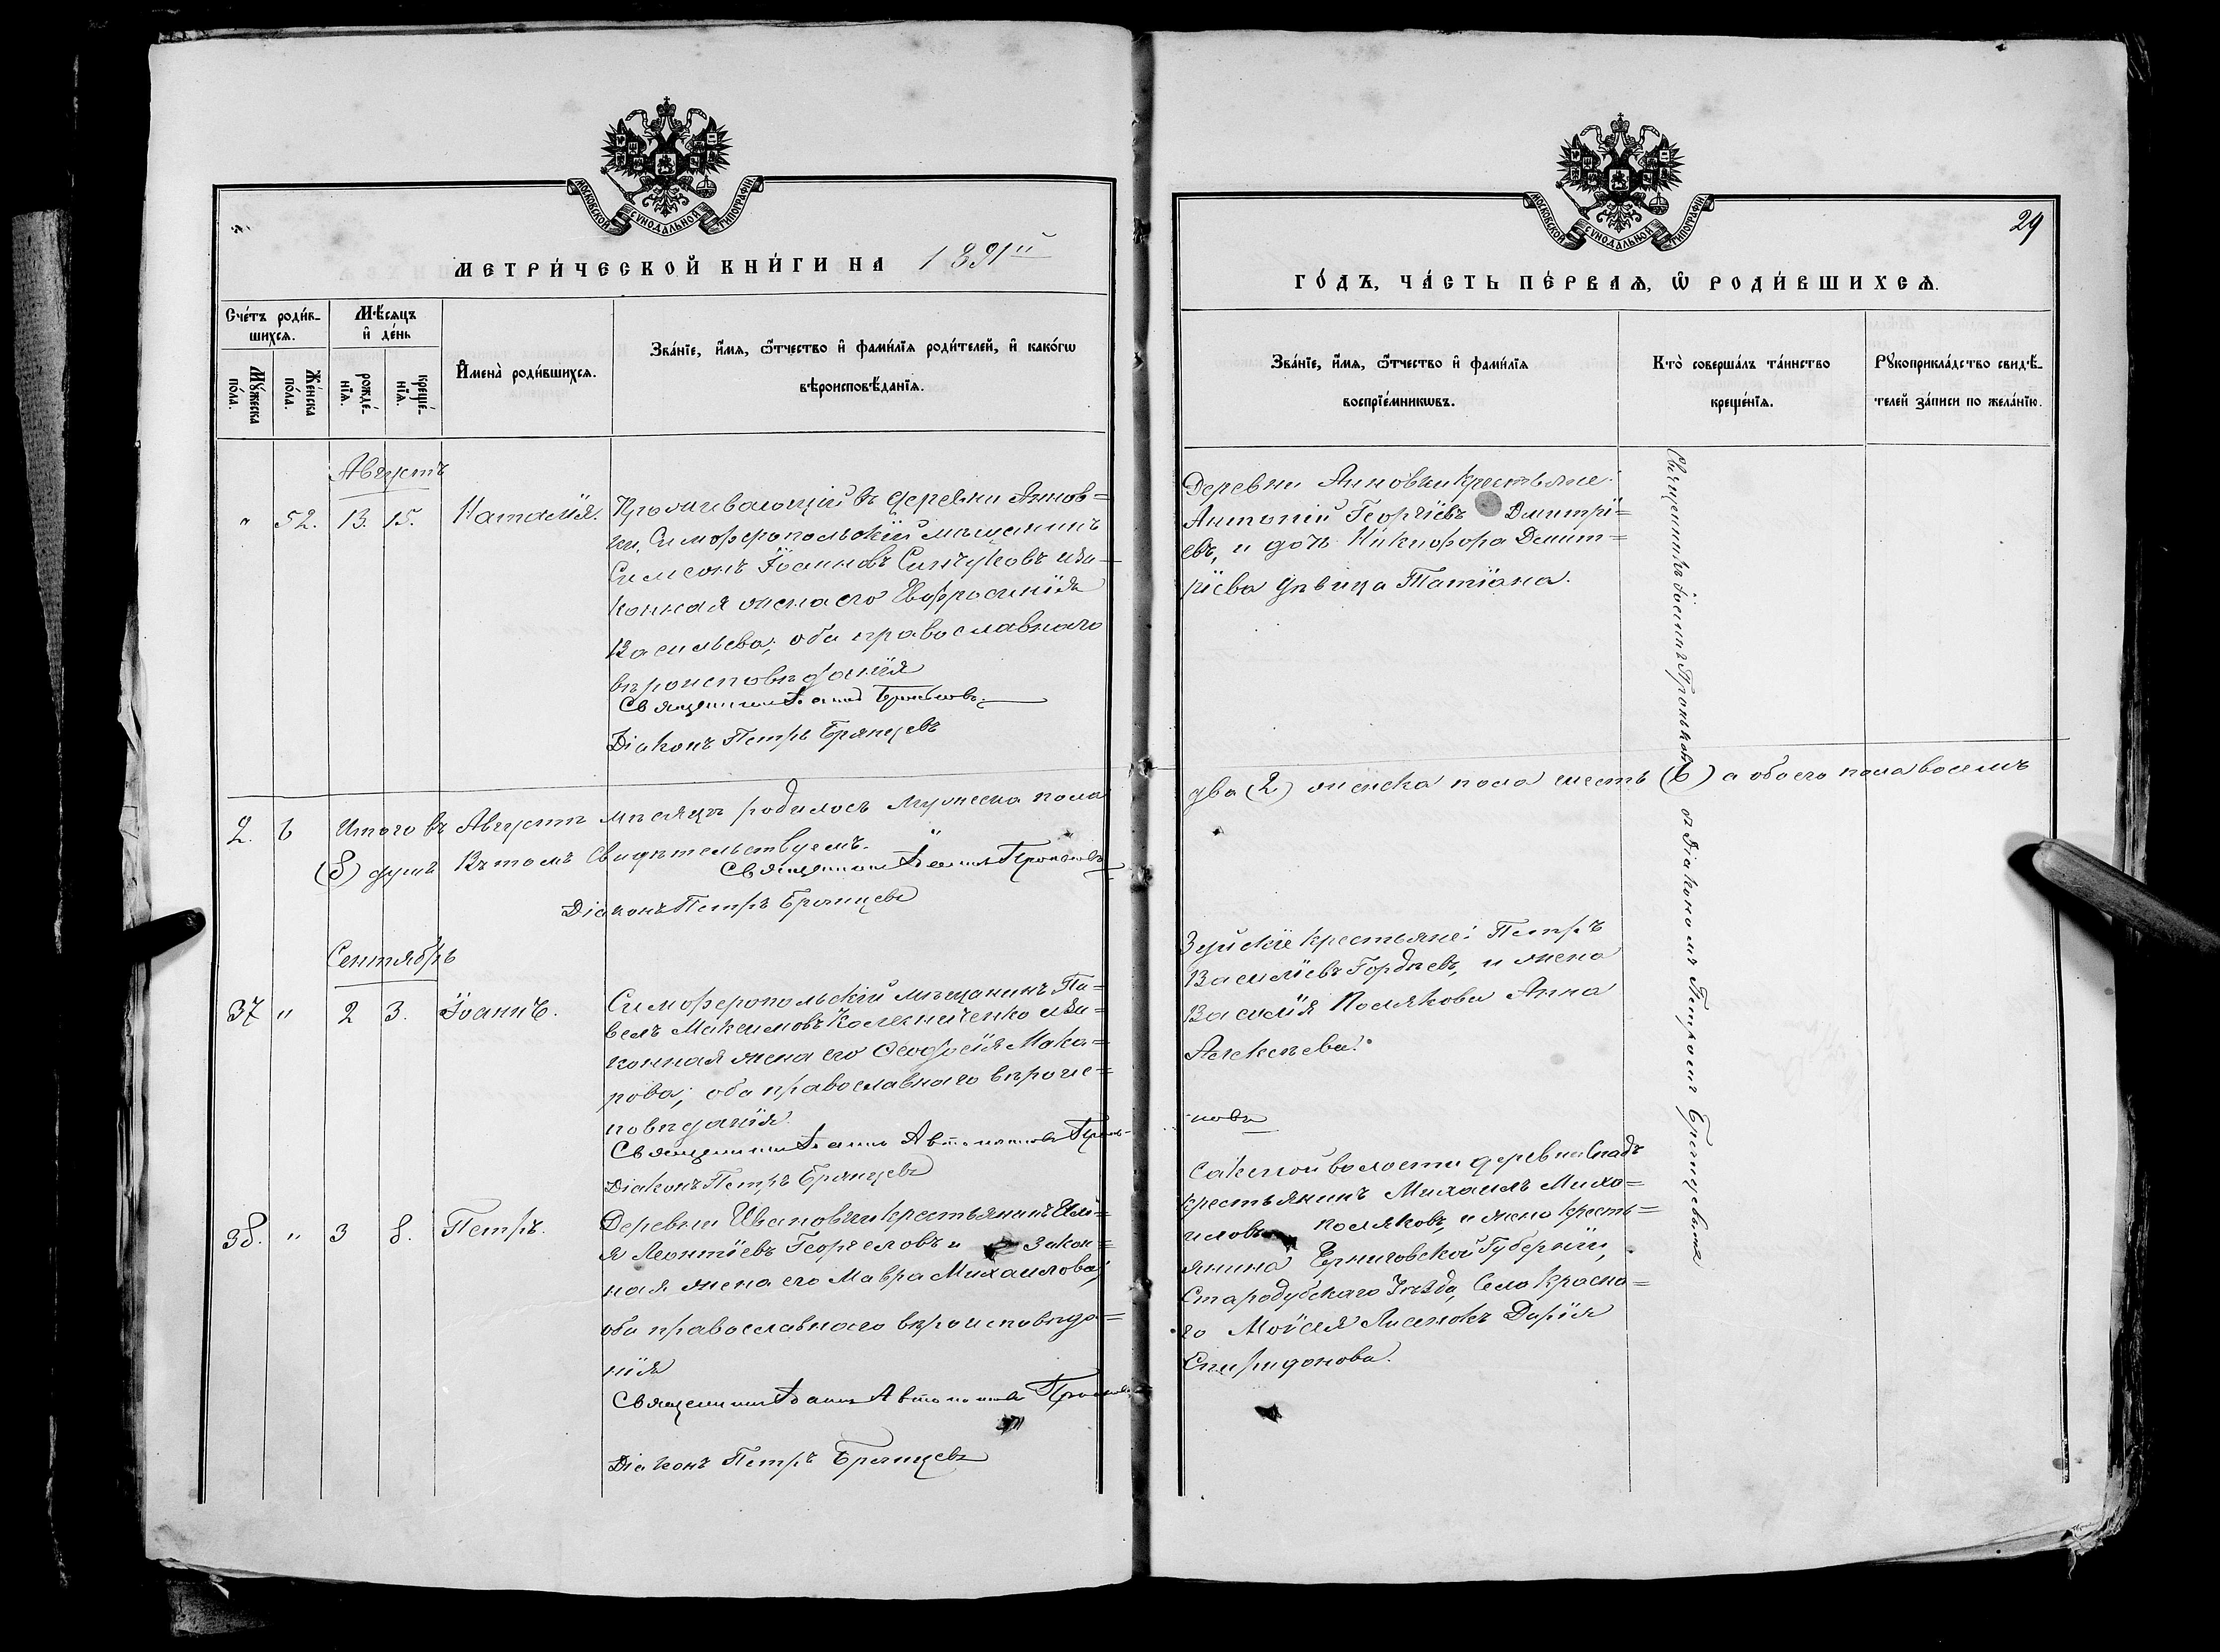 МОСКОВСКОЙ СѴНОДАЛЬНОЙ ТИПОГРАФІИ
МЕТРИ́ЧЕСКОЙ КНИ́ГИ НА 1891й
Сче́тъ роди́в-
шихсѧ.
Мꙋ́жеска
по́ла.
Же́нска
по́ла.
Мѣ́сяцъ
и҆ де́нь
рожде́-
нїѧ.
креще́-
нїѧ.
И҆мена̀ роди́вшихсѧ.
Зва́нїе, и҆́мѧ, ѻ҆́тчество и҆ фами́лїѧ роди́телей, и҆ како́гѡ
вѣроисповѣ́данїѧ.
Августъ
" 52. 13. 15. Наталія.
Проживающій въ деревни Аннов=
ки, Симферопольскій мѣщанинъ
Симеонъ Іоанновъ и за-
конная жена его Евфросинія
Васильева; оба православнаго
вѣроисповѣданія
Священникъ Іоаннъ Проньковъ
Діаконъ Петръ Брянцевъ
2. 6 Итого въ Августѣ мѣсяцѣ родилось мужеска пола
(8) душъ Въ томъ свидѣтельствуемъ.
Священникъ Іоаннъ Проньковъ
Діаконъ Петръ Брянцевъ
Сентябрь
37 " 2 3. Іоаннъ.
Симферопольскій мѣщанинъ Па=
велъ Максимовъ Колесниченко и за=
конная жена его Ѳеодосія Мака=
рова; оба православнаго вѣроис=
повѣданія.
Священникъ Іоаннъ Автономовъ Пронь-
Діаконъ Петръ Брянцевъ
38. " 3 8. Петръ.
Деревни Ивановки крестьянинъ Илі=
я Леонтіевъ и закон=
ная жена его Мавра Михаилова;
оба православнаго вѣроисповѣда=
нія
Священникъ Іоаннъ Автономовъ Проньковъ
Діаконъ Петръ Брянцевъ
МОСКОВСКОЙ СѴНОДАЛЬНОЙ ТИПОГРАФІИ
29
ГО́ДЪ, ЧА́СТЬ ПЕ́РВАѦ, Ѡ҆ РОДИ́ВШИХСѦ.
Зва́нїе, и҆́мѧ, ѻ҆́тчество и҆ фами́лїѧ
воспрїе́мникѡвъ.
Кто̀ соверша́лъ та́инство
креще́нїѧ.
Рꙋкоприкла́дство свидѣ́-
телей за́писи по жела́нїю.
Деревни Анновки крестьяне:
Антоній Георгіевъ Дмитрі=
евъ, и дочь Никифора Дмит=
ріева дѣвица Татіана.
Священникъ Іоаннъ Проньковъ съ Діакономъ Петромъ Брянцевымъ
два (2) женска пола шесть (6) а обоего пола восемь
Зуйскіе крестьяне: Петръ
Василіевъ Гордѣевъ, и жена
Василія Полякова Анна
Алексѣева.
-ковъ
крестьянинъ Михаилъ Миха=
иловъ Поляковъ, и жена кресть=
янина Черниговской Губерніи,
Стародубскаго Уѣзда, Село Красна=
го Дарія
Спиридонова.